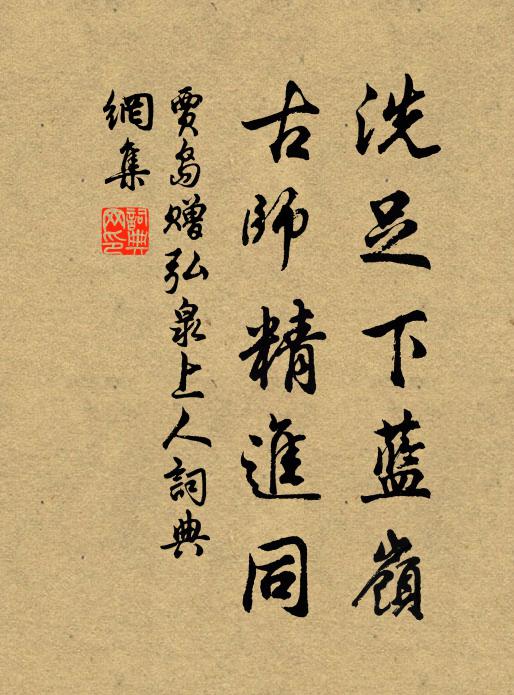 洗足下藍嶺
古師精進同
賈島贈弘泉上人詞典
網集
詞典
网印